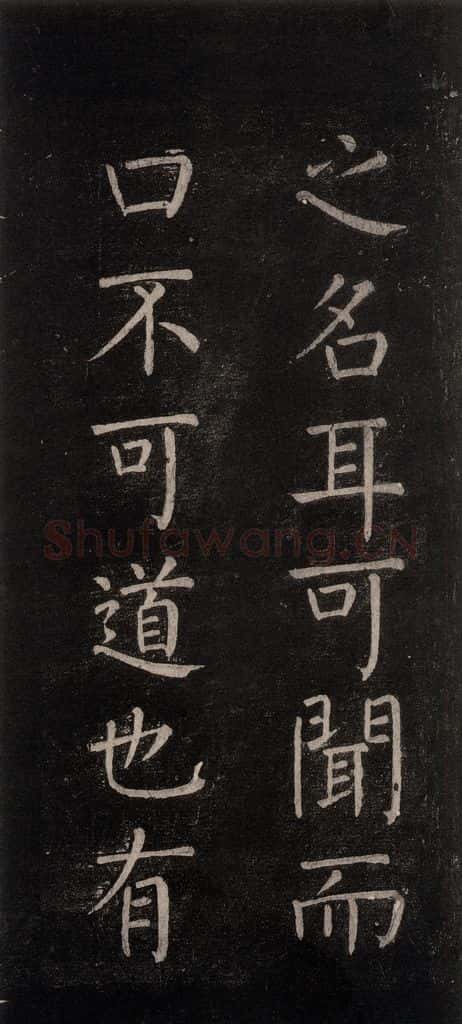 之名耳可聞而
口不可道也有
Shufawang.CN